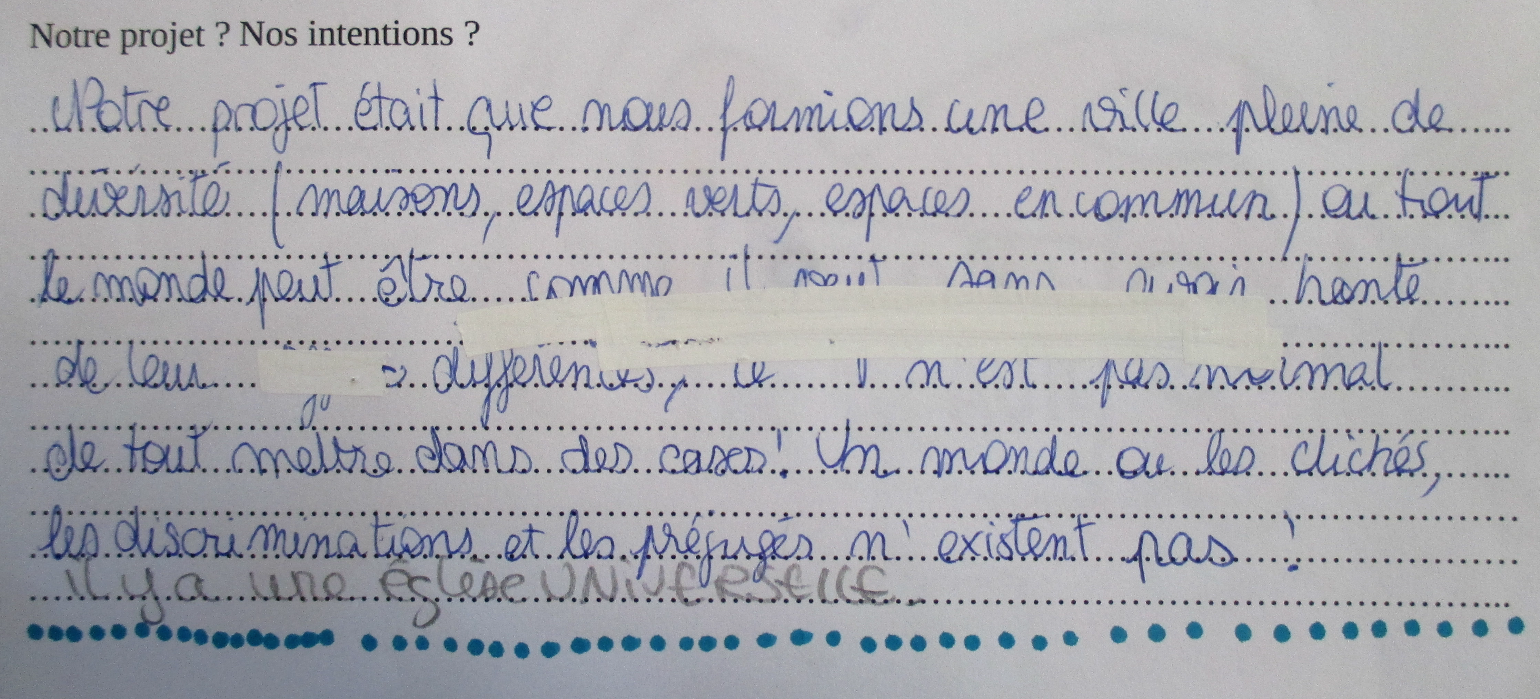 Notre projet ? Nos intentions ?
Notre projet était que nous formions une ville pleine de
diversité (maisons, espaces verts, espaces en commun) ou tout
le monde peut être comme il veut sans avoir honte
de leur différences, ce n'est pas normal
de tout mettre dans des cases! Un monde ou les clichés,
les discriminations et les préjugés n'existent pas !
il y a une église UNIVERSELLE.